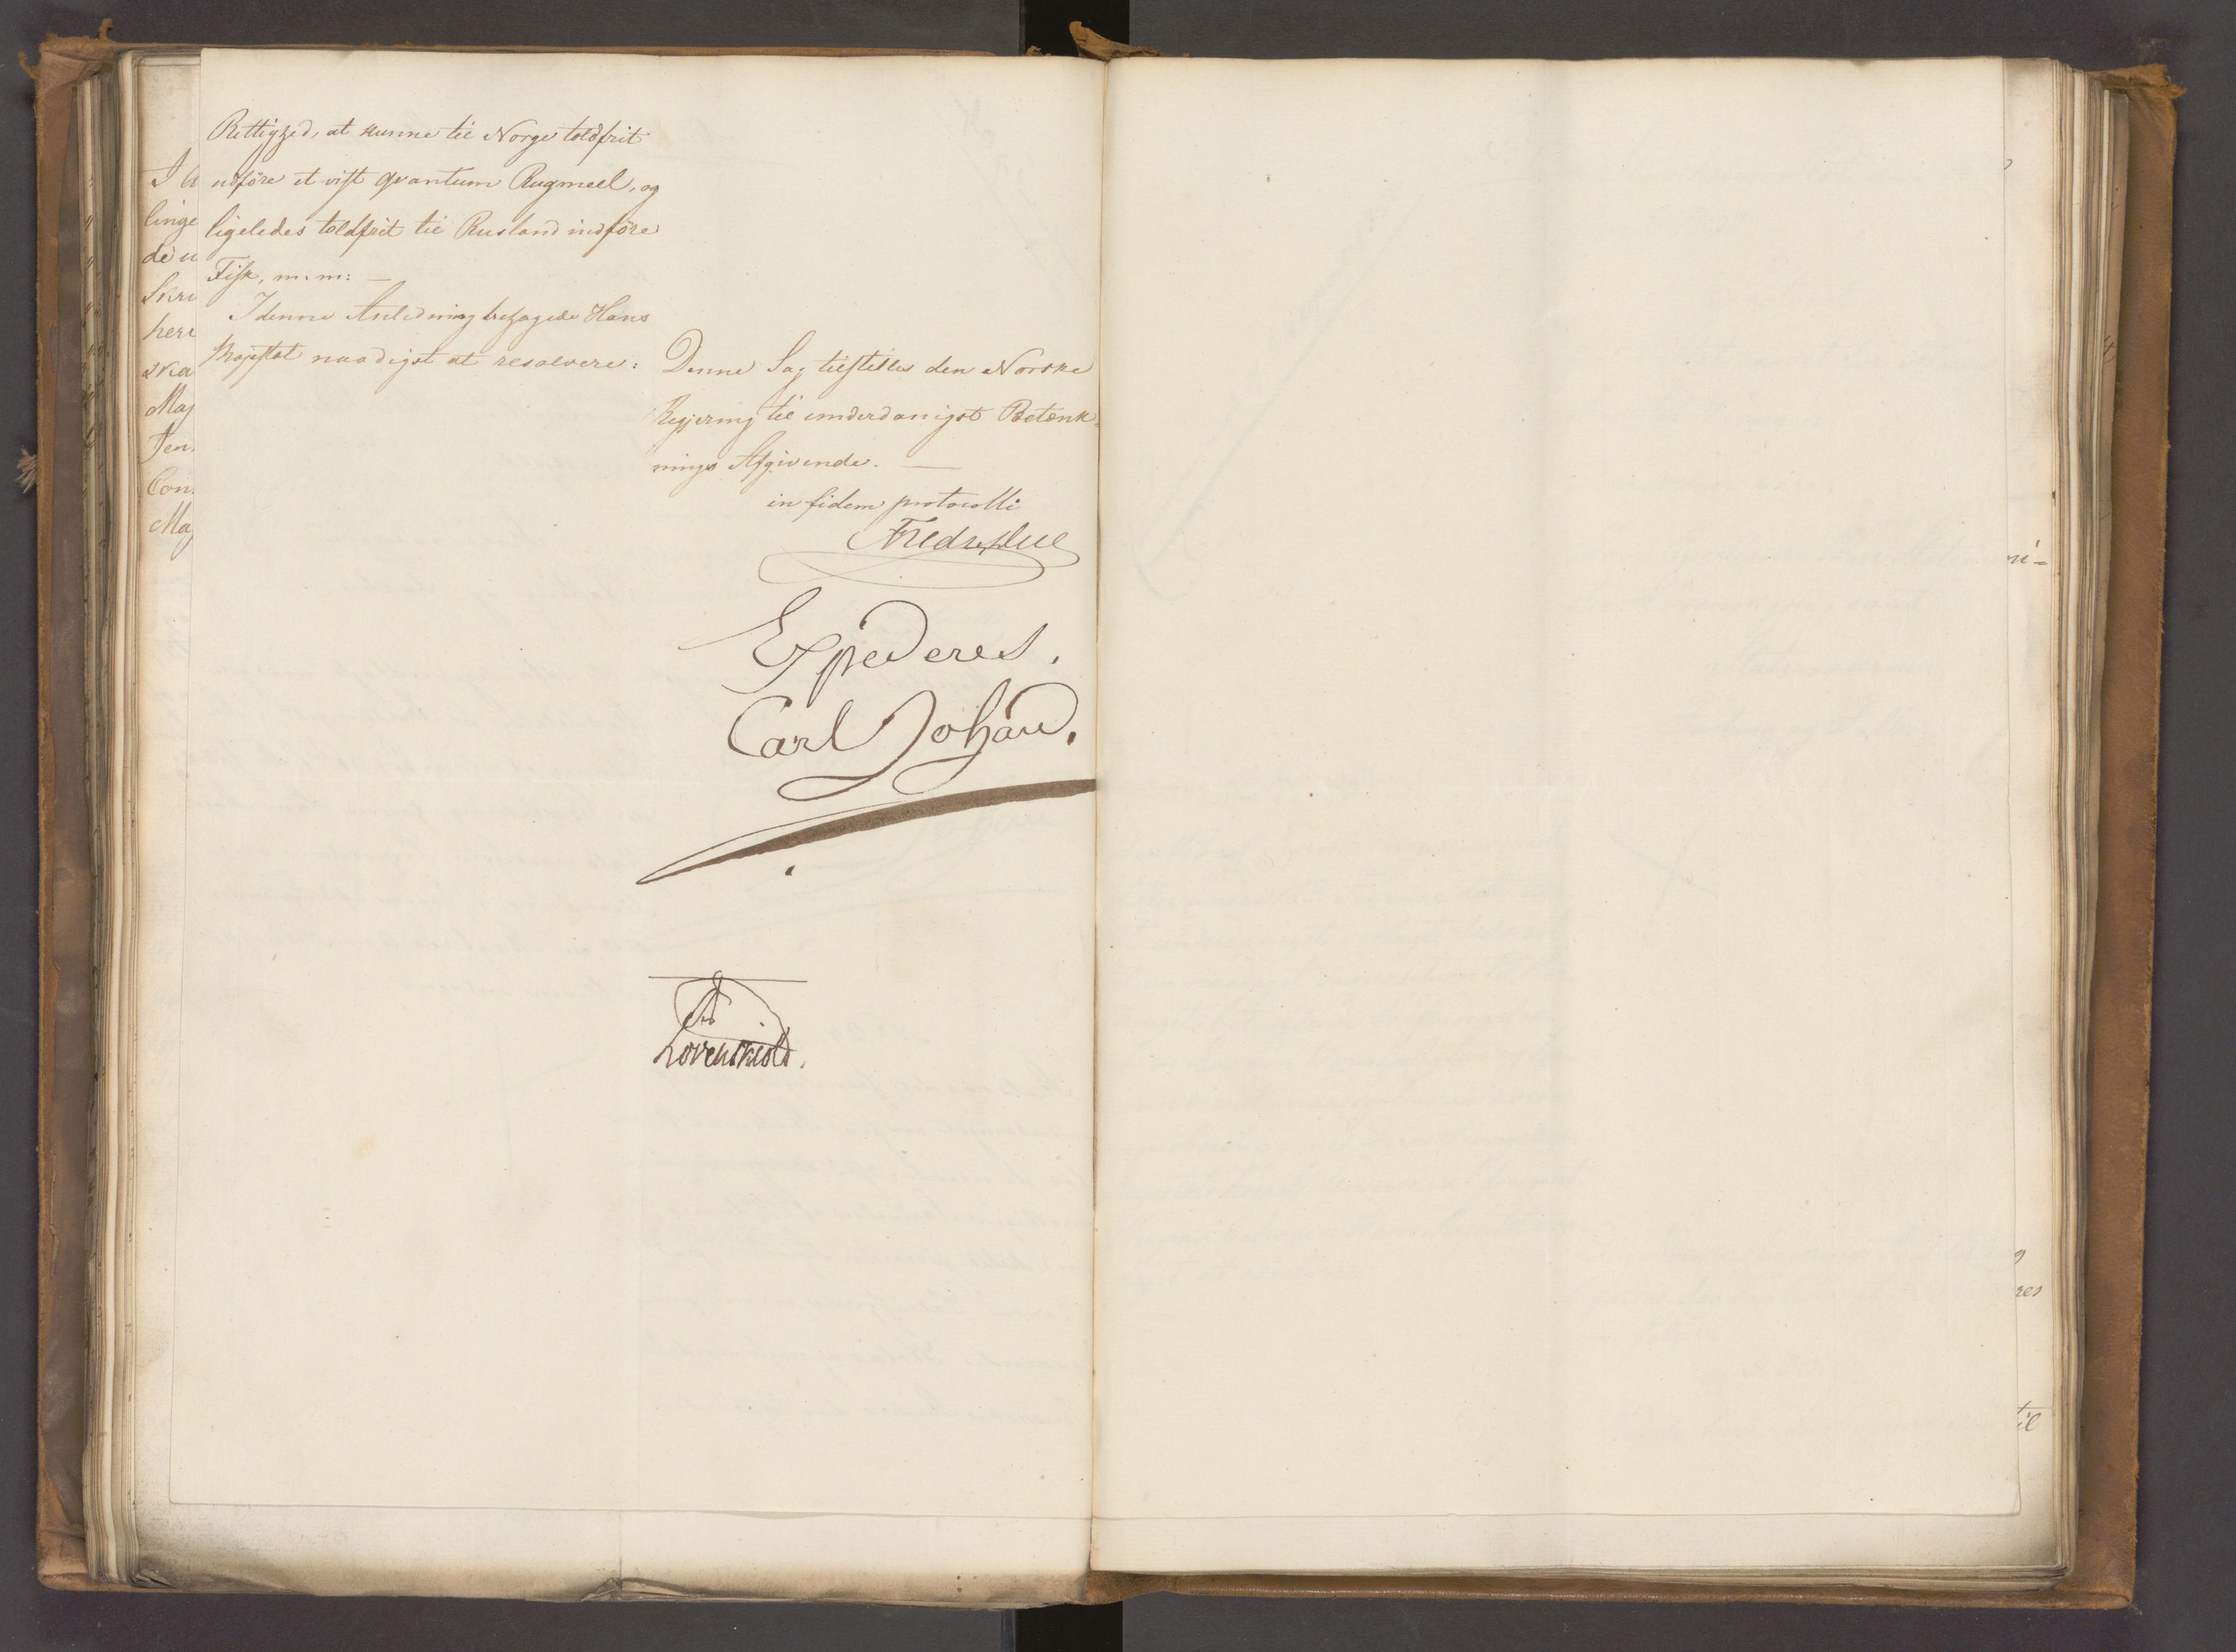 Rettighed, at kunne til Norge toldfrit
udføre et vist Qvantum Rugmeel, og
ligeledes toldfrit til Rusland indføre
Fisk, m: m: —
I denne Anledning behagede Hans
Majestæt naadigst at resolvere:
Denne Sag tilstilles den Norske
Regjering til underdanigst Betænk-
nings Afgivende. —
in fidem protocolli
Fredr. Due
Expederes.
Carl Johan.
Løvenskiold.
I A
linge
de u
Skri
herr
ska
Maj
Jen.
Con.
Maj
ni-
res
til